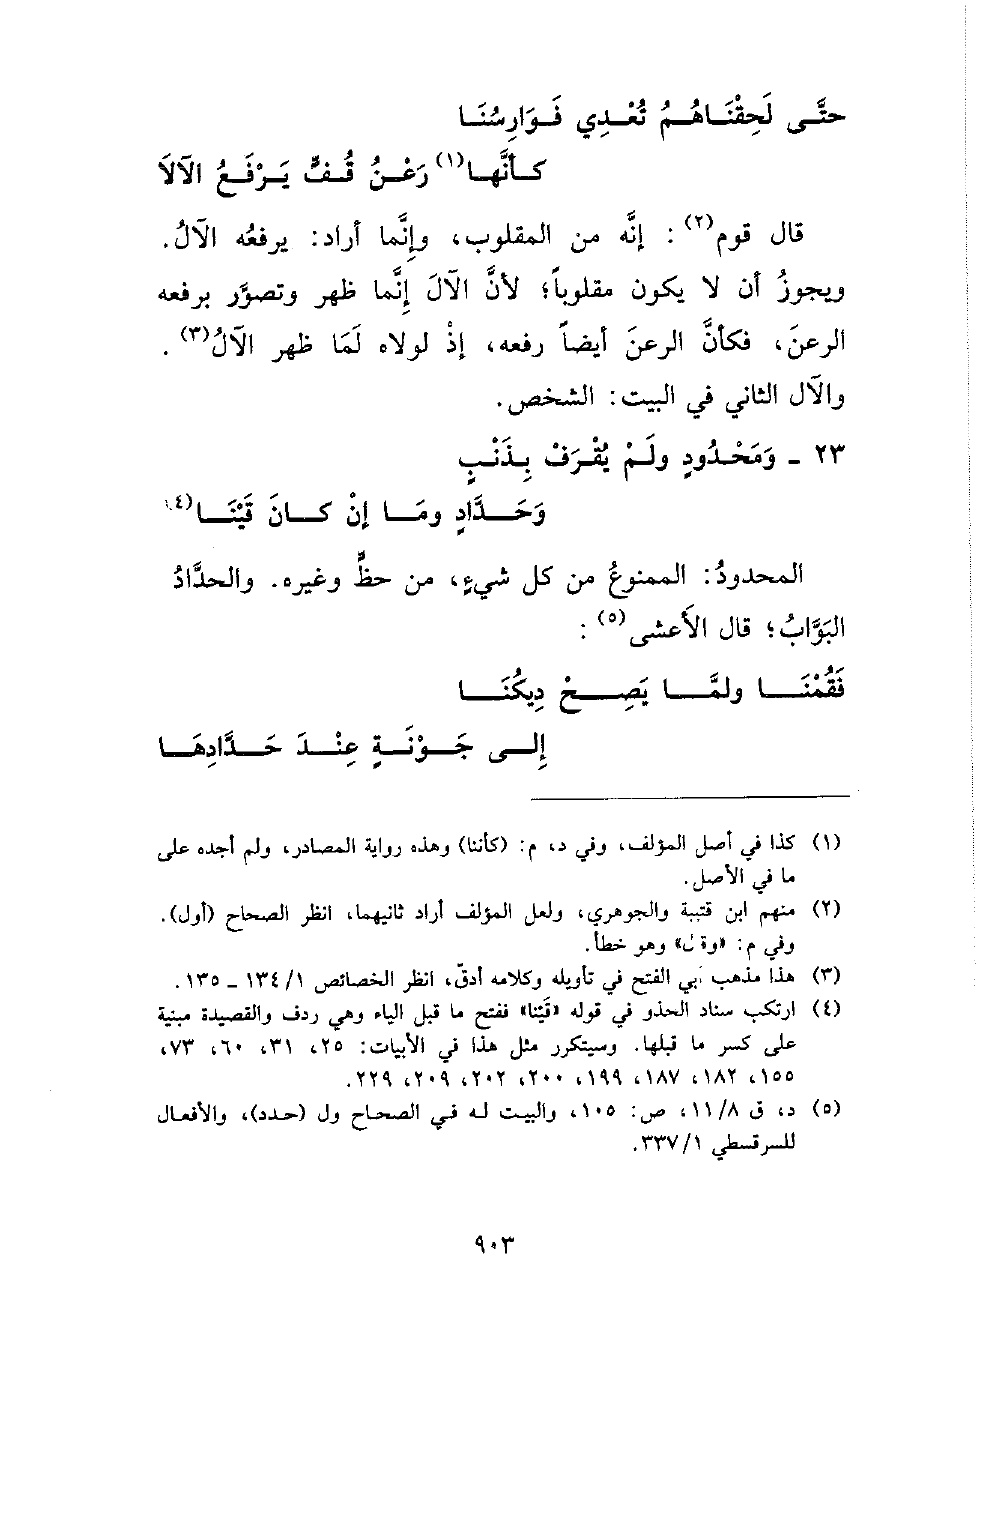 حتَّى لَحِقْنَاهُمُ تُعْدِي فَوَارِسُنَا
كأنَّها(١) رَعْنُ قُفٍّ يَرْفَعُ الآلاَ
قال قوم(٢) : إنَّه من المقلوب، وإِنَّما أراد: يرفعُه الآلُ.
ويجوزُ أن لا يكون مقلوباً؛ لأنَّ الآلَ إِنَّما ظهر وتصوَّر برفعه
الرعنَ، فكأنَّ الرعنَ أيضاً رفعه، إذْ لولاه لَمَا ظهر الآلُ(٣) .
والآل الثاني في البيت: الشخص.
٢٣ ـ وَمَحْدُودٍ ولَمْ يُقْرَفْ بِذَنْبٍ
وَحَدَّادٍ ومَا إنْ كانَ قَيْنَا(٤)
المحدودُ: الممنوعُ من كل شيءٍ، من حظٍّ وغيره. والحدَّادُ
البَوَّابُ؛ قال الأَعشى(٥) :
فَقُمْنَا ولمَّا يَصِحْ دِيكُنَا
إِلى جَوْنَةٍ عِنْدَ حَدَّادِهَا
(١) كذا في أصل المؤلف، وفي د، م: (كأننا) وهذه رواية المصادر، ولم أجده على
ما في الأصل.
(٢) منهم ابن قتيبة والجوهري، ولعل المؤلف أراد ثانيهما، انظر الصحاح (أول).
وفي م: «وقال» وهو خطأ.
(٣) هذا مذهب أبي الفتح في تأويله وكلامه أدقّ، انظر الخصائص ١/ ١٣٤ ـ ١٣٥ .
(٤) ارتكب سناد الحذو في قوله «قَيْنا» ففتح ما قبل الياء وهي ردف والقصيدة مبنية
على كسر ما قبلها. وسيتكرر مثل هذا في الأبيات: ٢٥، ٣١، ٦٠، ٧٣،
١٥٥، ١٨٢، ١٨٧، ١٩٩، ٢٠٠، ٢٠٢، ٢٠٩، ٢٢٩.
(٥) د، ق ٨/ ١١، ص: ١٠٥، والبيت له في الصحاح ول (حدد)، والأفعال
للسرقسطي ١/ ٣٣٧.
٩٠٣